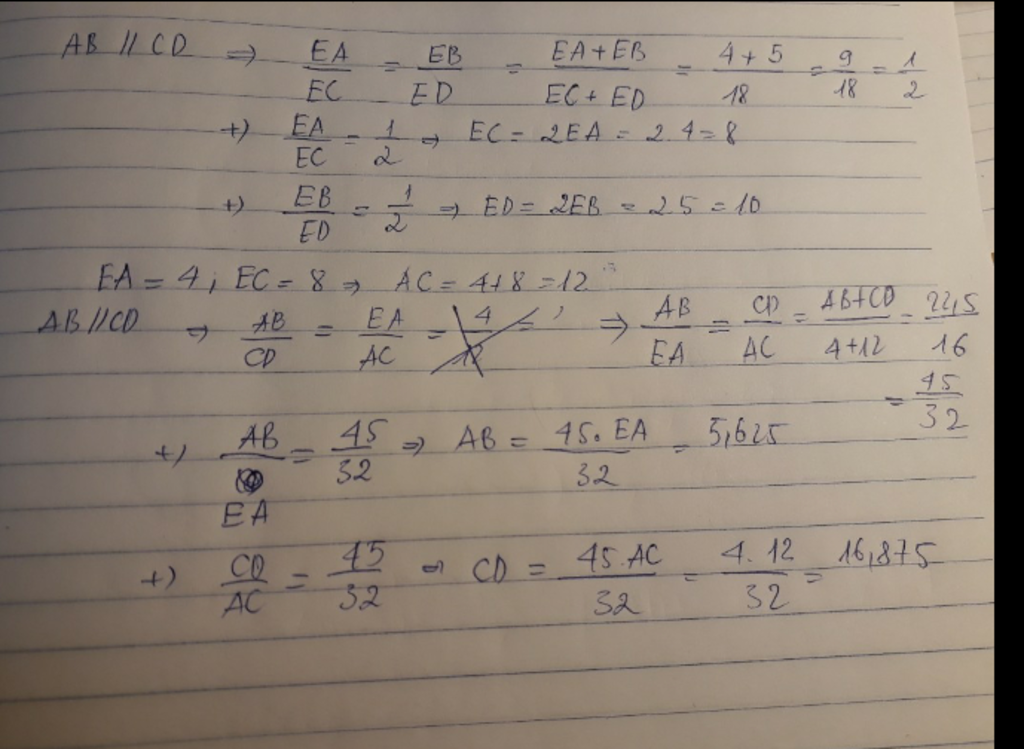 AB // CD ⇒ EA/EC = EB/ED = EA+EB/EC+ED = 4+5/18 = 9/18 = 1/2
+) EA/EC = 1/2 ⇒ EC = 2EA = 2.4 = 8
+) EB/ED = 1/2 ⇒ ED = 2EB = 2.5 = 10
EA = 4 ; EC = 8 ⇒ AC = 4+8 = 12
AB//CD ⇒ AB/CD = EA/AC = 4/12 = ⇒ AB/EA = CD/AC = AB+CD/4+12 = 22,5/16
= 45/32
+) AB/EA = 45/32 ⇒ AB = 45.EA/32 = 5,625
+) CD/AC = 45/32 ⇒ CD = 45.AC/32 = 4.12/32 = 16,875